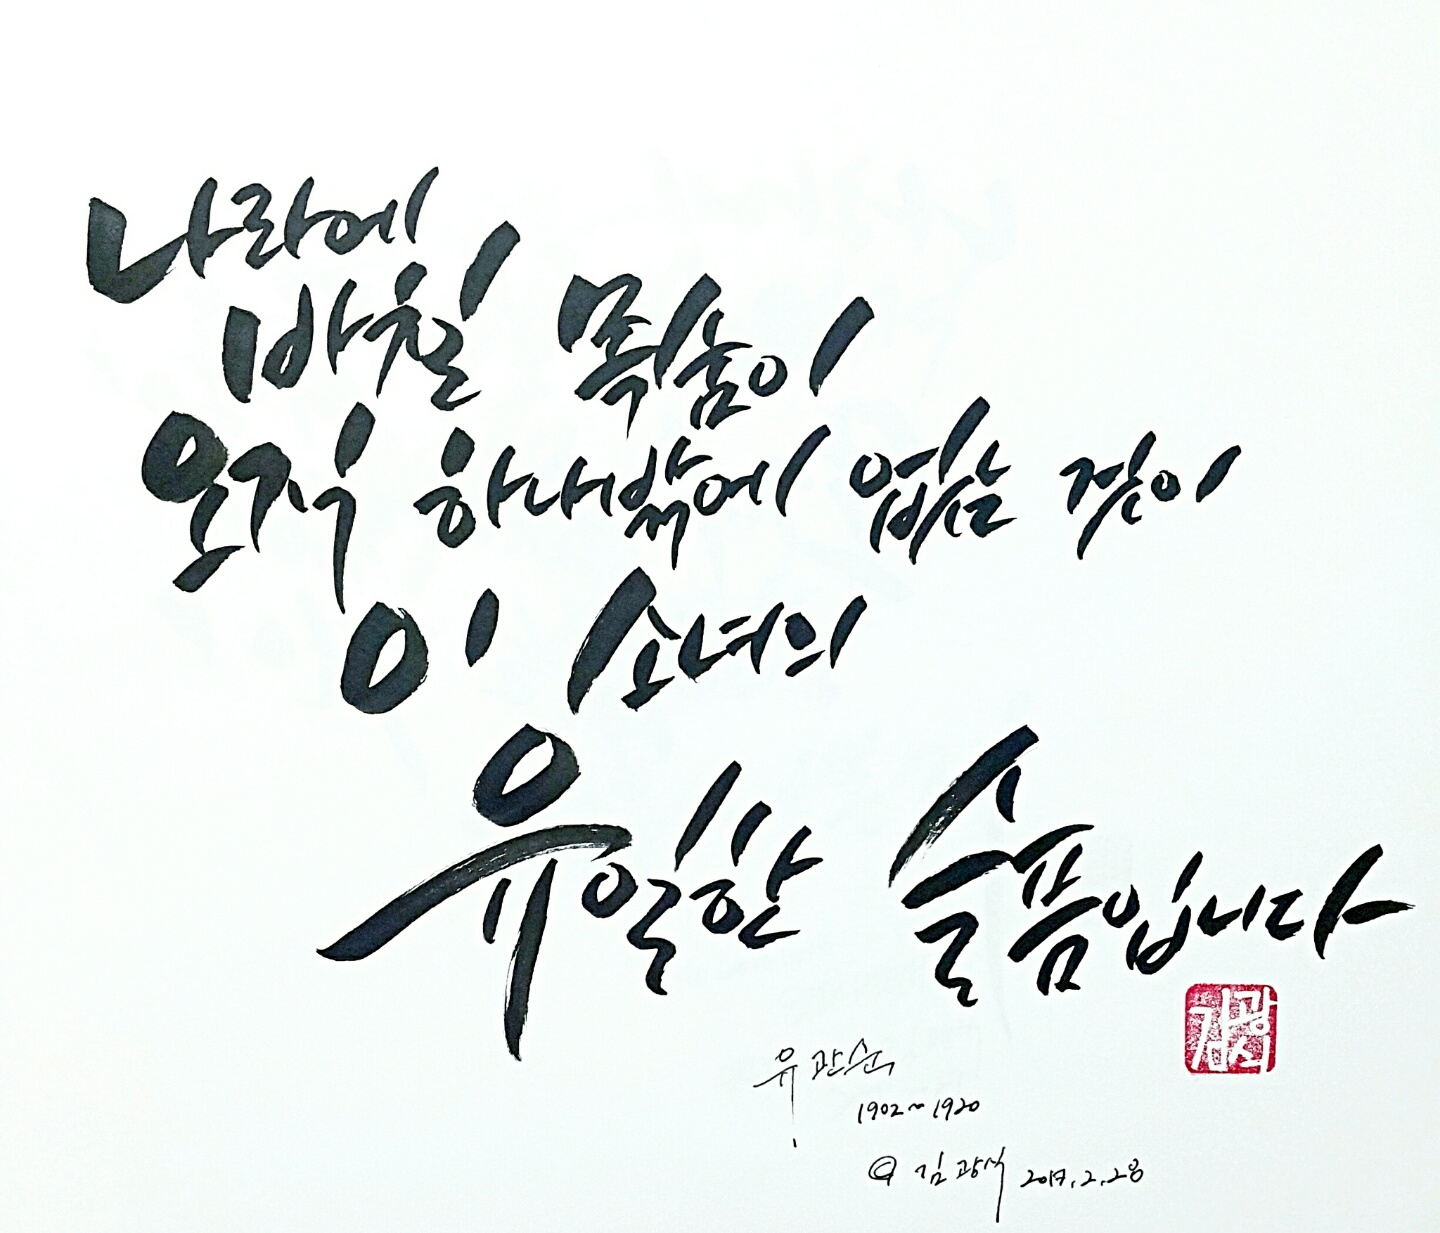 나라에
바칠 목숨이
오직 하나밖에 없는 것이
이 소녀의
유일한 슬픔입니다
유관순
1902~1920
© 김광석 2017.2.28